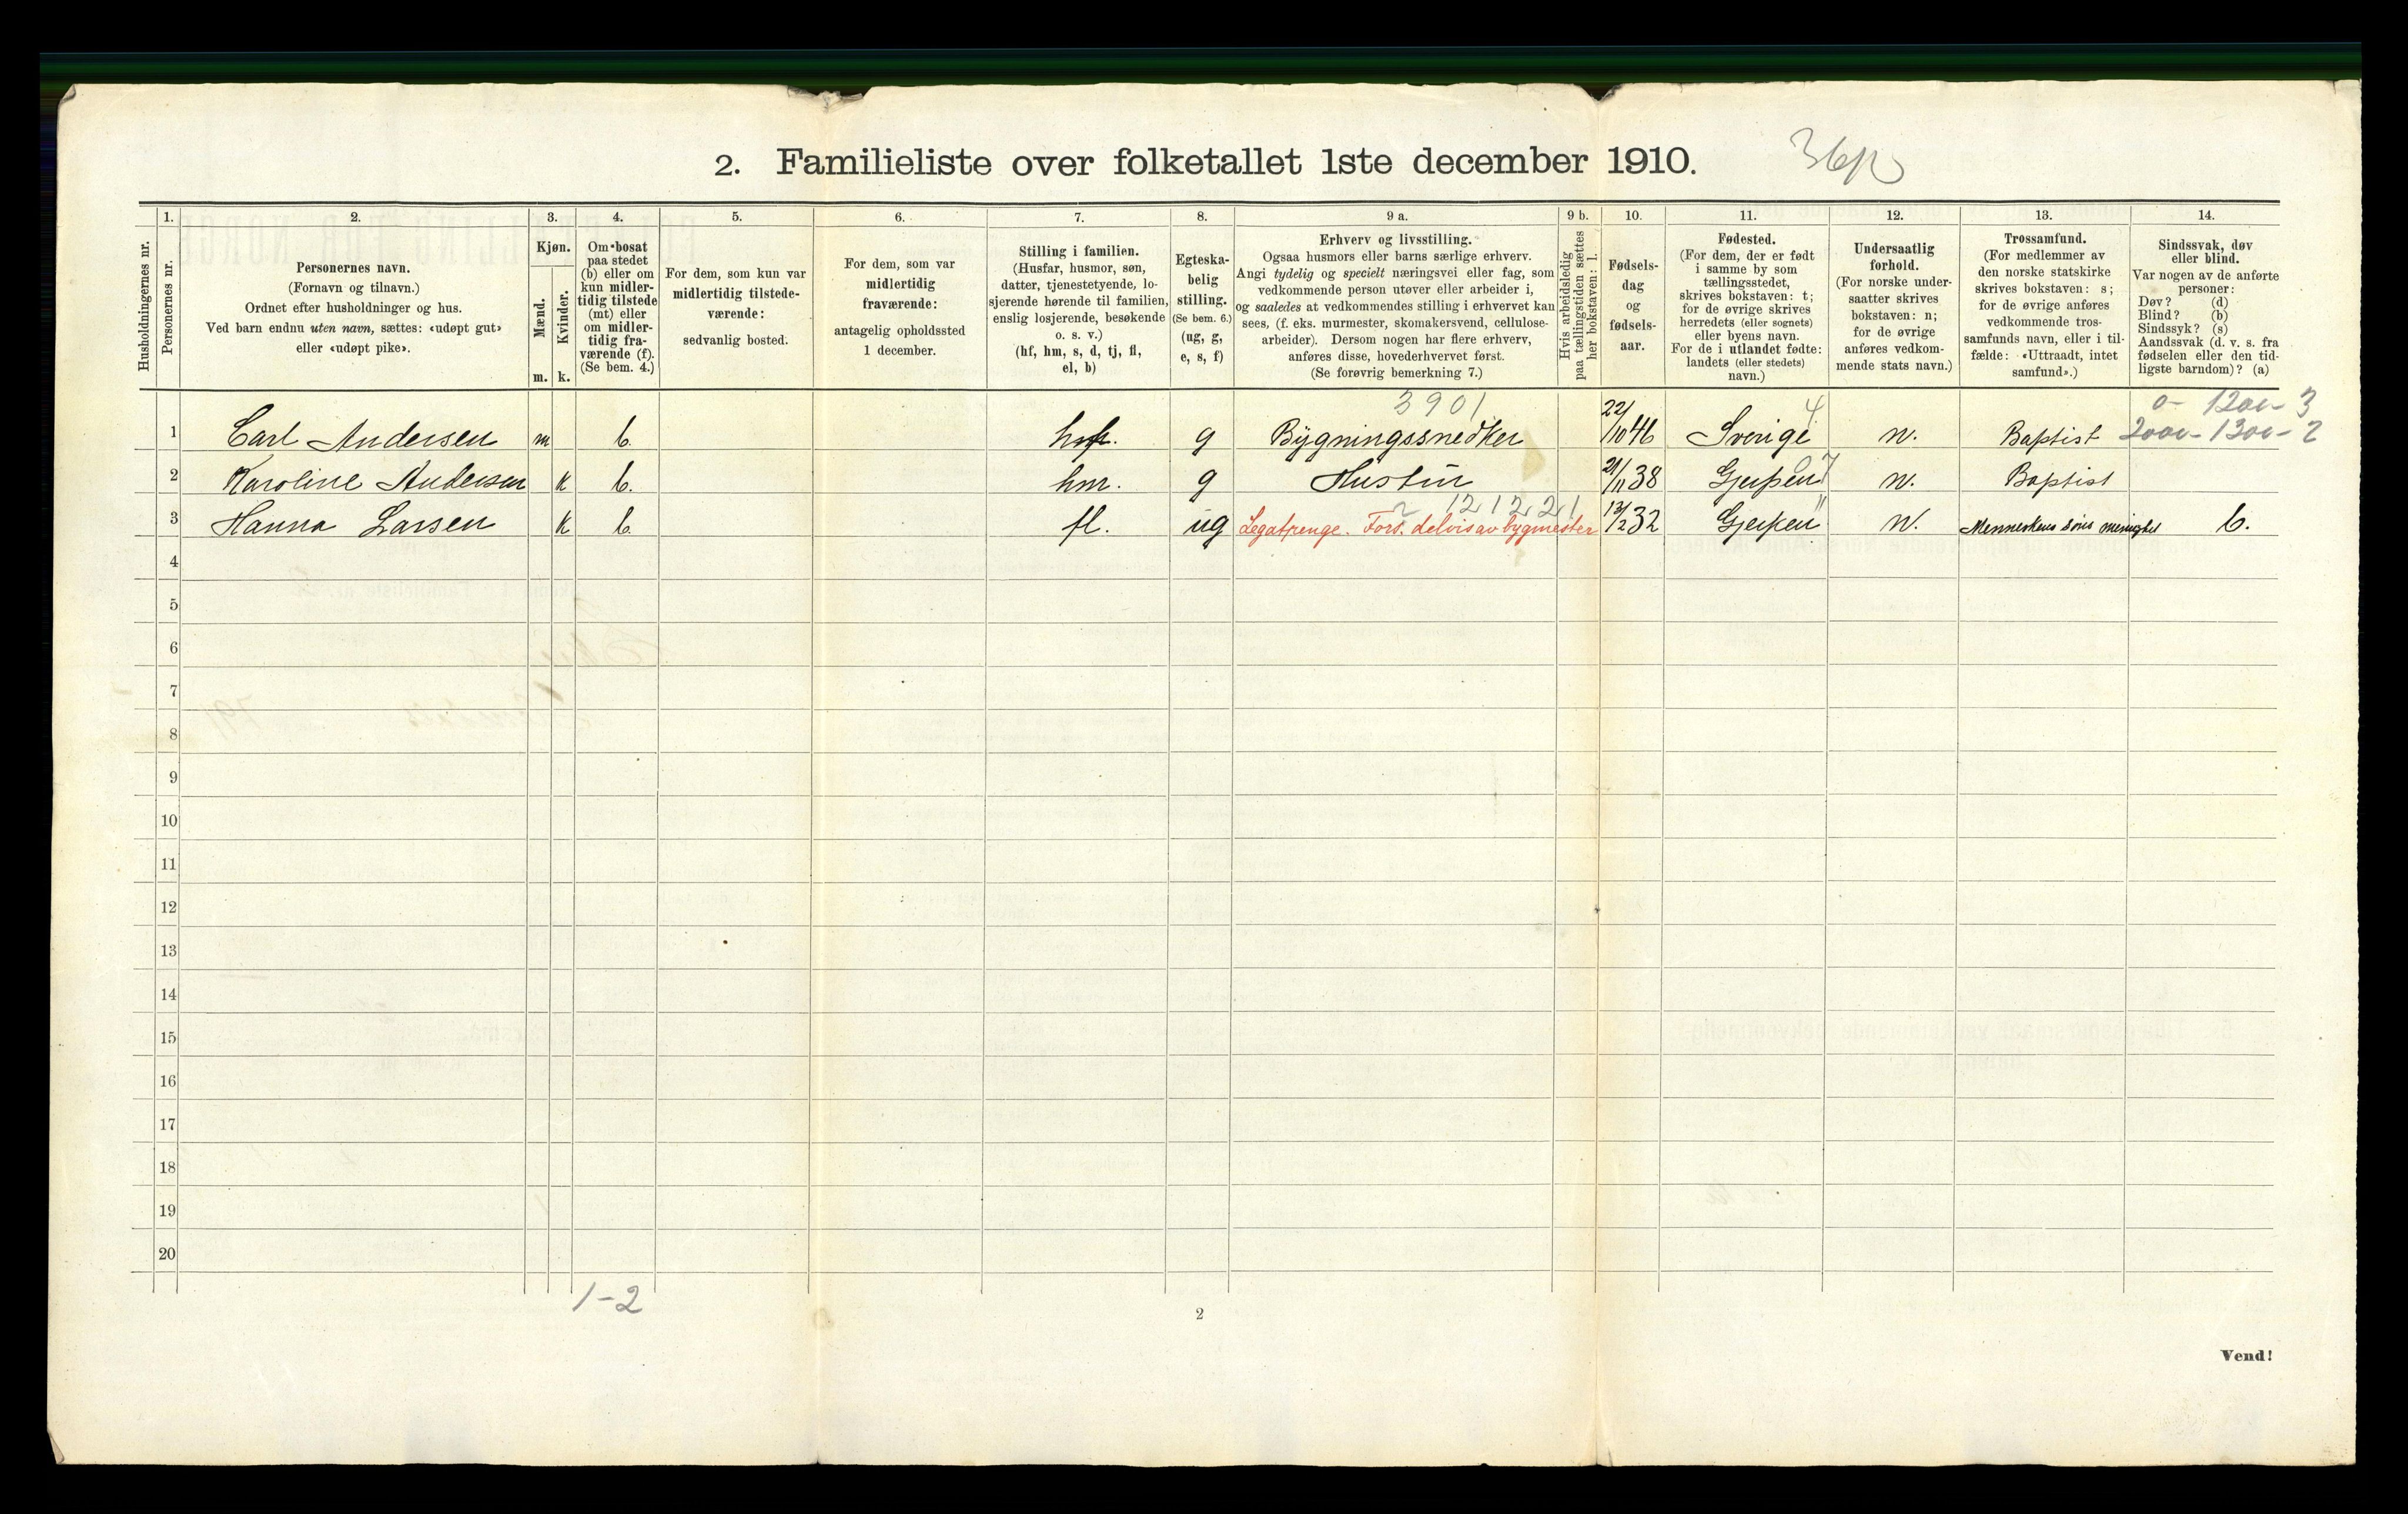 2. Familieliste over folketallet 1ste december 1910.
1. 2. 3. 4. 5. 6. 7. 8. 9 a. 9 b. 10. 11. 12. 13. 14.
Husholdningernes nr.
Personernes nr.
Personernes navn.
(Fornavn og tilnavn.)
Ordnet efter husholdninger og hus.
Ved barn endnu uten navn, sættes: «udøpt gut»
eller «udøpt pike».
Kjøn.
Mænd.
Kvinder.
m. k.
Om bosat
paa stedet
(b) eller om
kun midler-
tidig tilstede
(mt) eller
om midler-
tidig fra-
værende (f).
(Se bem. 4.)
For dem, som kun var
midlertidig tilstede-
værende:
sedvanlig bosted.
For dem, som var
midlertidig
fraværende:
antagelig opholdssted
1 december.
Stilling i familien.
(Husfar, husmor, søn,
datter, tjenestetyende, lo-
sjerende hørende til familien,
enslig losjerende, besøkende
o. s. v.)
(hf, hm, s, d, tj, fl,
el, b)
Egteska-
belig
stilling.
(Se bem. 6.)
(ug, g,
e, s, f)
Erhverv og livsstilling.
Ogsaa husmors eller barns særlige erhverv.
Angi tydelig og specielt næringsvei eller fag, som
vedkommende person utøver eller arbeider i,
og saaledes at vedkommendes stilling i erhvervet kan
sees, (f. eks. murmester, skomakersvend, cellulose-
arbeider). Dersom nogen har flere erhverv,
anføres disse, hovederhvervet først.
(Se forøvrig bemerkning 7.)
Hvis arbeidsledig
paa tællingstiden sættes
her bokstaven: l.
Fødsels-
dag
og
fødsels-
aar.
Fødested.
(For dem, der er født
i samme by som
tællingsstedet,
skrives bokstaven: t;
for de øvrige skrives
herredets (eller sognets)
eller byens navn.
For de i utlandet fødte:
landets (eller stedets)
navn.)
Undersaatlig
forhold.
(For norske under-
saatter skrives
bokstaven: n;
for de øvrige
anføres vedkom-
mende stats navn.)
Trossamfund.
(For medlemmer av
den norske statskirke
skrives bokstaven: s;
for de øvrige anføres
vedkommende tros-
samfunds navn, eller i til-
fælde: «Uttraadt, intet
samfund».)
Sindssvak, døv
eller blind.
Var nogen av de anførte
personer:
Døv? (d)
Blind? (b)
Sindssyk? (s)
Aandssvak (d. v. s. fra
fødselen eller den tid-
ligste barndom)? (a)
3901 4 0- 1200- 3
1 Carl Andersen m b. hf. g Bygningssnedker 22/10 46 Sverige n. Baptist 2000- 1300- 2
2 Karoline Andersen k b. hm. g Hustru 21/11 38 Gjerpen n. Baptist
121221
3 Hanna Larsen k b. fl. ug Legatpenge. Fors. delvis av bygmester 13/2 32 Gjerpen n. Menneskens søns menighet b.
4
5
6
7
8
9
10
11
12
13
14
15
16
17
18
19
20
1-2
2
Vend!